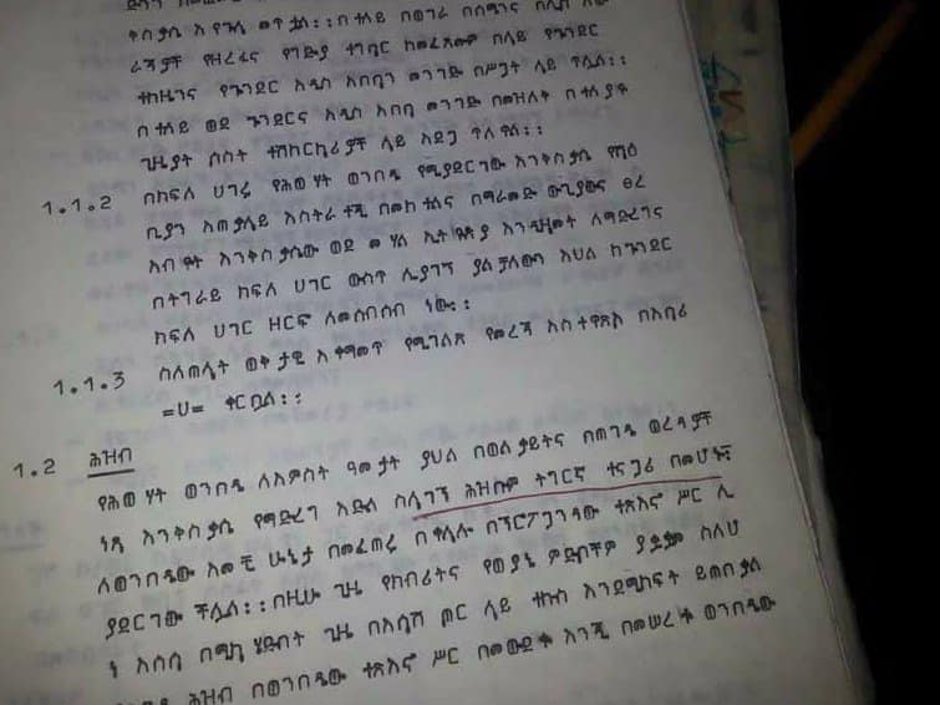 ቀስቃሴ እየጎላ መጥቷል፡፡በተለይ በወገራ በስሜንና በሊቦ
ራዳዎች የዘረፋና የግድያ ተግባር ከመፈጸሙም በላይ የጎንደር
ተከዜንና የጎንደር አዲስ አበባን መንገድ በሥጋት ላይ ጥሏል፡፡
በተለይ ወደ ጎንደርና አዲስ አበባ መንገድ በመዝለቅ በተለያዩ
ጊዜያት ሶስት ተሽከርካሪዎች ላይ አደጋ ጥለዋል፡፡
1.1.2 በክፍለ ሀገሩ የሕወሃት ወንበዴ የሚያደርገው እንቅስቃሴ የሻዕ
ቢያን አጠቃላይ እስትራተጂ በመከተልና በማራመድ ውጊያውና ፀረ
አብዮት እንቅስቃሴው ወደ መሃል ኢትዮጵያ እንዲዛመት ለማድረግና
በትግራይ ክፍለ ሀገር ውስጥ ሊያገኝ ያልቻለውን እህል ከጎንደር
ክፍለ ሀገር ዘርፎ ለመሰብሰብ ነው፡፡
1.1.3 ስለጠላት ወቅታዊ አቀማመጥ የሚገልጽ የመረጃ አስተዋጽኦ በአባሪ
=ሀ= ቀርቧል፡፡
1.2 ሕዝብ
የሕወሃት ወንበዴ ለአምስት ዓመታት ያህል በወልቃይትና በጠገዴ ወረዳዎች
ነጻ እንቅስቃሴ የማድረግ እድል ስላገኝ ሕዝቡም ትግርኛ ተናጋሪ በመሆኑ
ለወንበዴው አመቺ ሁኔታ በመፈጠሩ በቀላሉ በፕሮፖጋንዳው ተጽእኖ ሥር ሊ
ያደርገው ችሏል፡፡በዚሁ ጊዜ የከበሬትና የወያኔ ምድብተኞ ያቋቋሙ ስለሆ
ነ አሰሳ በሚካሄድበት ጊዜ በአሳሽ ጦር ላይ ተኩስ እንደሚከፍት ይጠበቃል
ሕዝብ በወንበዴው ተጽእኖ ሥር በመውደቁ እንጂ በመሠረቱ ወንበዴው